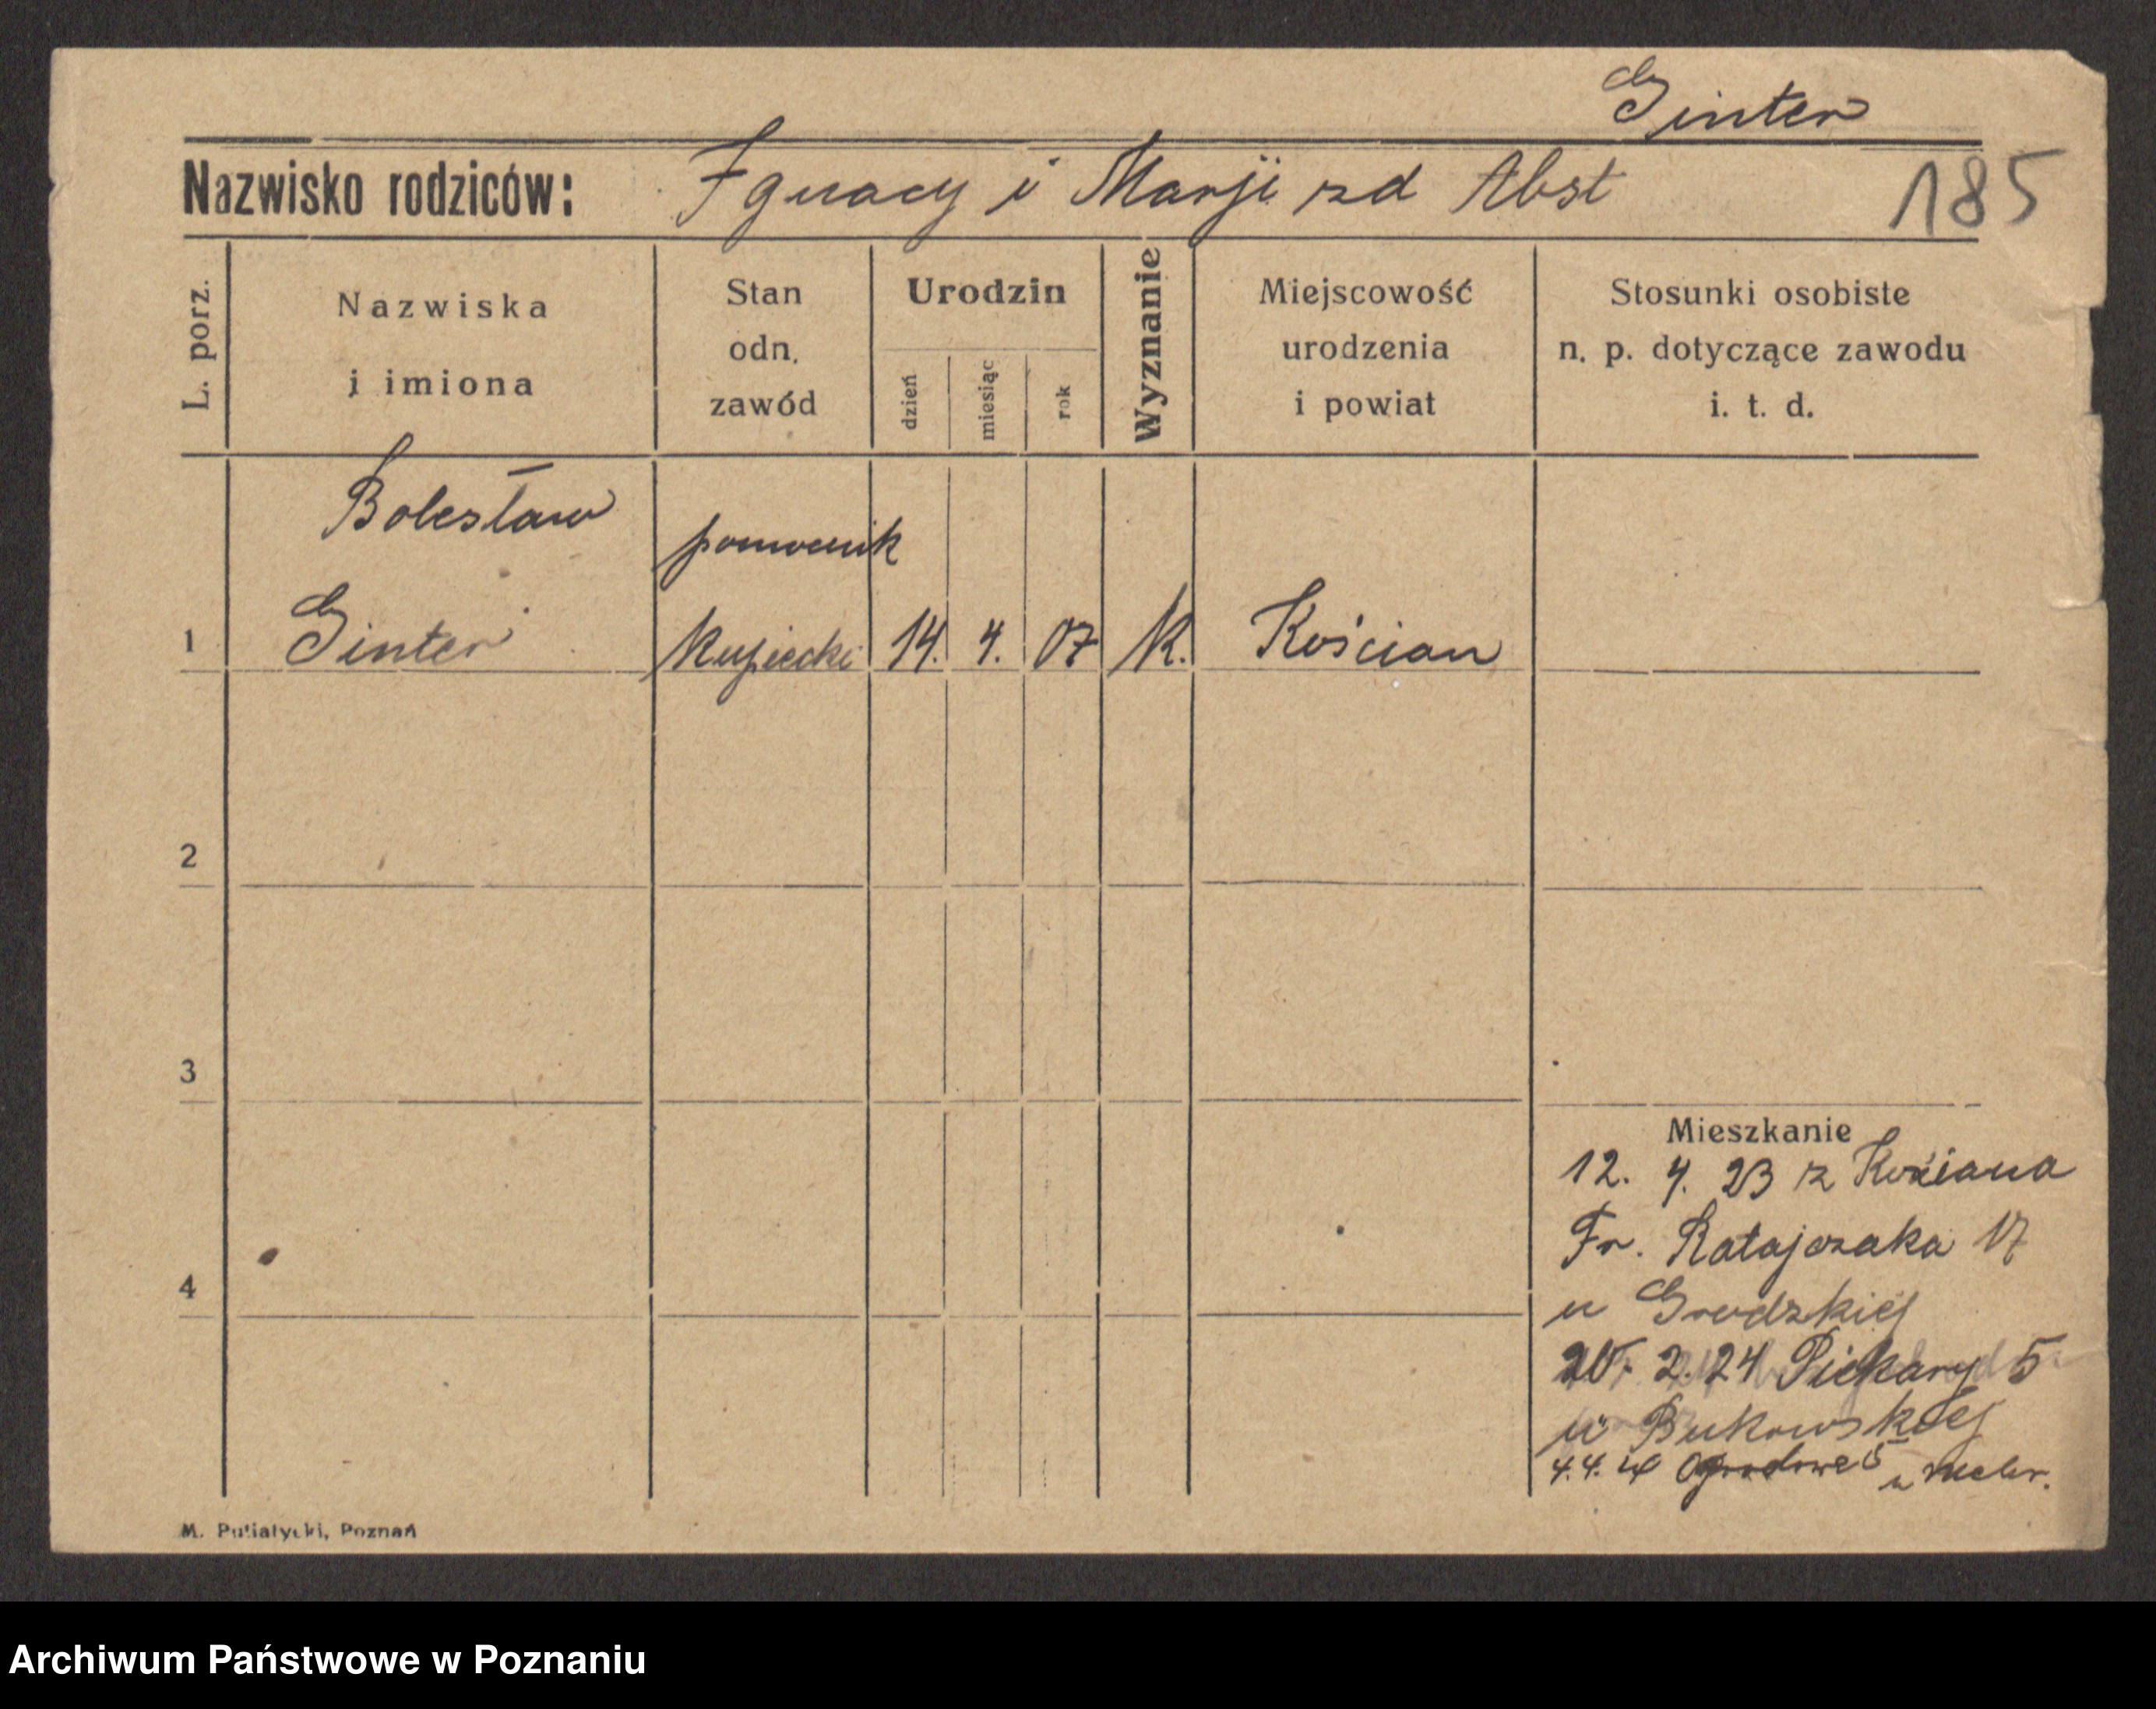 Ginter
Nazwisko rodziców: Ignacy i Marji zd Abst
185
L. porz.
Nazwiska
i imiona
Stan
odn.
zawód
Urodzin
dzień
miesiąc
rok
Wyznanie
Miejscowość
urodzenia
i powiat
Stosunki osobiste
n. p. dotyczące zawodu
i. t. d.
Bolesław
pomocnik
1 Ginter kupiecki 14. 4. 07 K. Kościan
2
3
Mieszkanie
12. 4. 23 z Kościana
Fr. Ratajczaka 17
4
u Grodzkiej
20. 2. 24 Piekary 5
u Bukowskiej
4.4. Ogrodowe 5 u
M. Putiatycki, Poznań
Archiwum Państwowe w Poznaniu